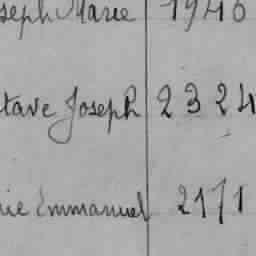 seph Marie 1946
tave Joseph 2324
rie Emmanuel 2171